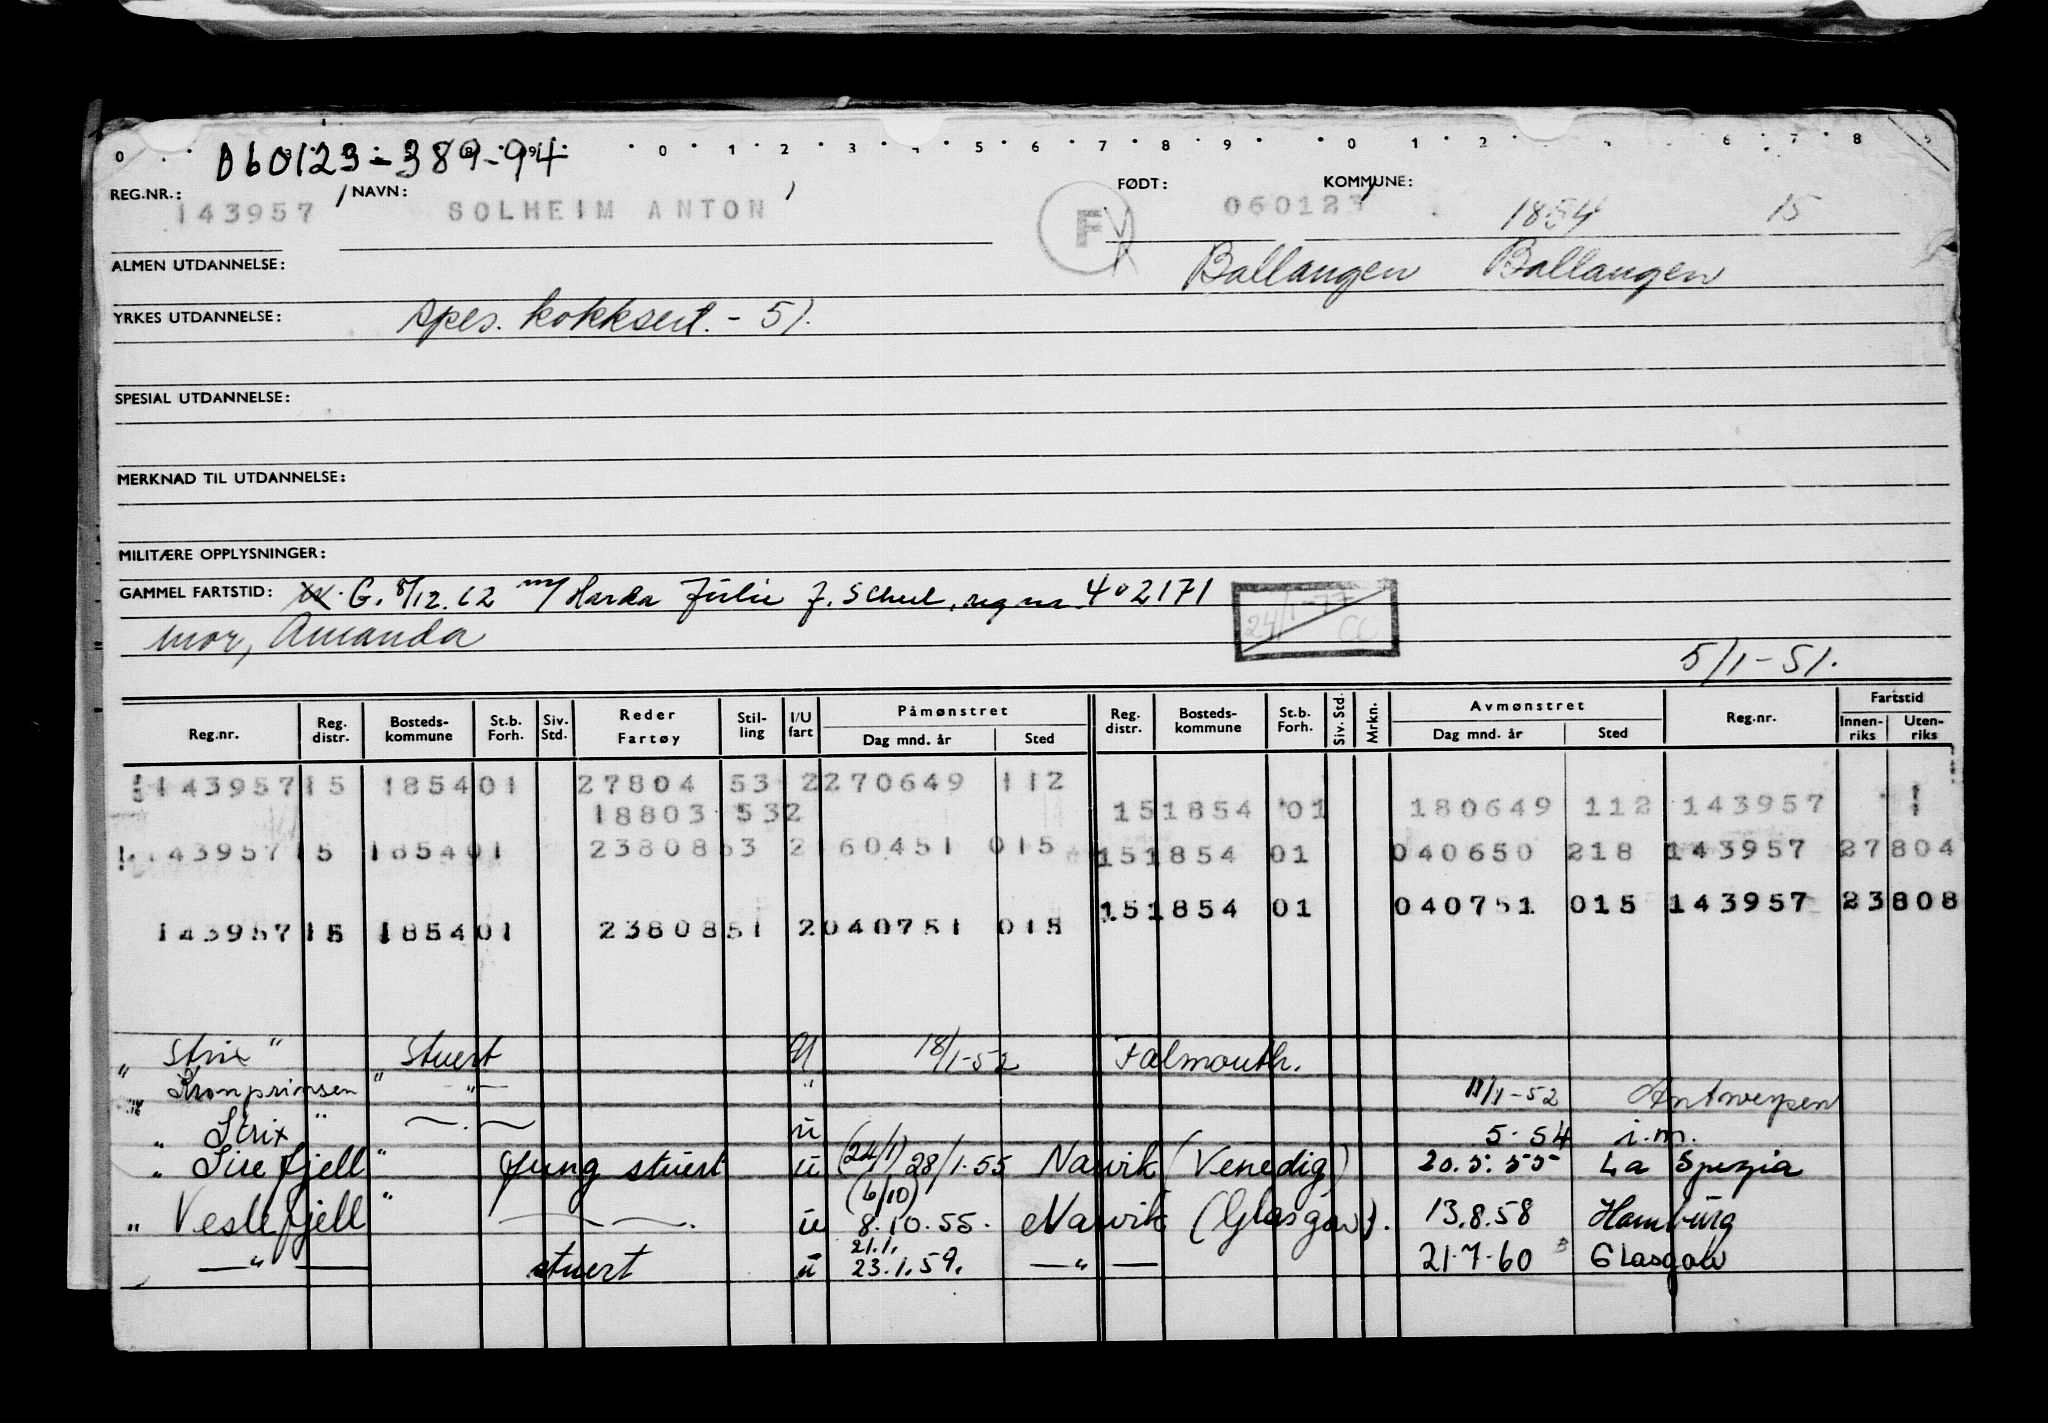 0 0 1 2 3 4 5 6 7 8 9 0 1 2 6 7 8 9
060123-389-94
REG.NR.: NAVN: FØDT: KOMMUNE:
143957 SOLHEIM ANTON F 060123 1854 15
ALMEN UTDANNELSE: Ballangen Ballangen
YRKES UTDANNELSE: spes. kokksert. - 51.
SPESIAL UTDANNELSE:
MERKNAD TIL UTDANNELSE:
MILITÆRE OPPLYSNINGER:
GAMMEL FARTSTID: G. 8/12.62 m/ Harda Julie f. Scheel, reg nr. 402171
24/1-77 CC
mor, Amanda
5/1-51.
Reg.nr. Reg. distr. Bosteds- kommune St.b. Forh. Siv. Std. Reder Fartøy Stil- ling I/U fart Påmønstret Dag mnd. år Sted Reg. distr. Bosteds- kommune St.b. Forh. Siv. Std. Mrkn. Avmønstret Dag mnd. år Sted Reg.nr. Fartstid Innen- riks Uten- riks
143957 15 1854 01 27804 53 2 270649 112
18803 53 2 15 1854 01 180649 112 143957
143957 15 1854 01 23808 53 2 160451 015 15 1854 01 040650 218 143957 27804
15 1854 01 040751 015 143957 23808
143957 15 1854 01 23808 51 2 040751 015
" Strix " Stuert U 18/1-52 Falmouth.
" Kronprinsen " — " — " 11/1-52 Antwerpen
" Strix " — . — u 5.54 i.m.
" Sirefjell " Jung stuert u (24/1) 28/1.55 Narvik (Venedig) 20.5.55 La Spezia
" Veslefjell " — . — u (6/10) 8.10.55. Narvik (Glasgow). 13.8.58 Hamburg
— " — stuert u 21.1. 23.1.59. — " — 21.7.60 Glasgow